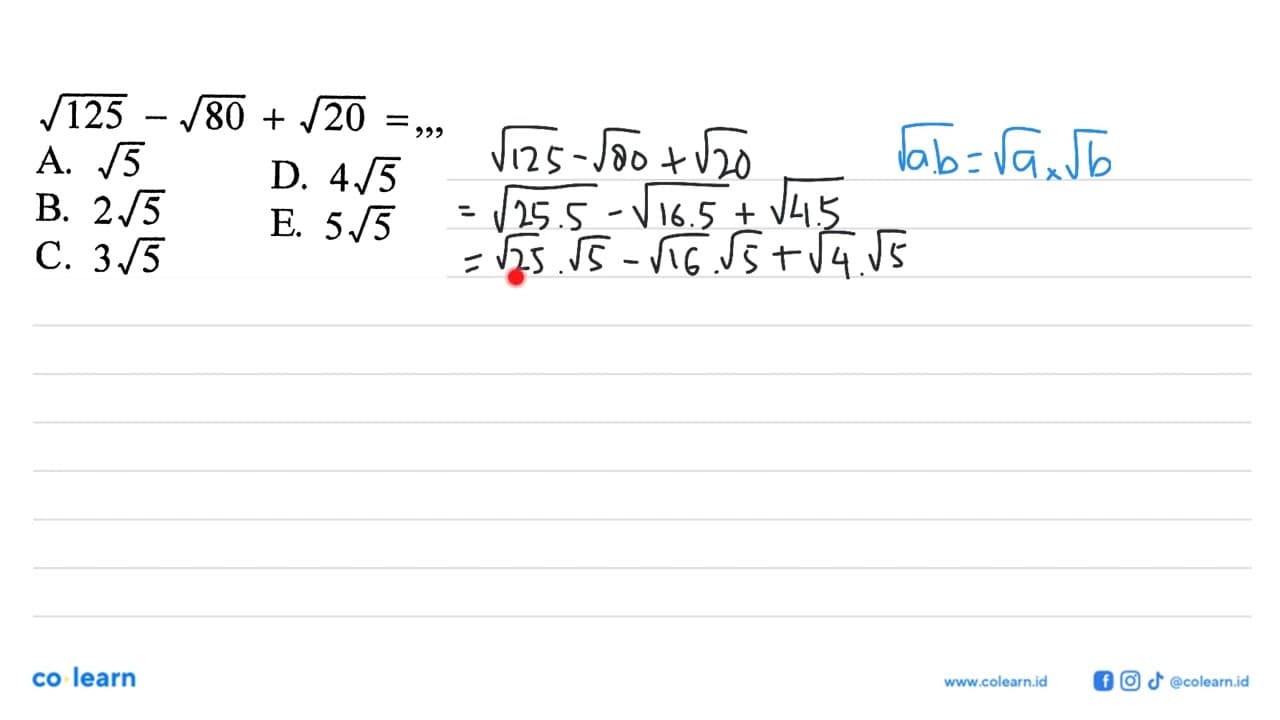 √125 − √80 + √20 = ,,,
A. √5
B. 2√5
C. 3√5
D. 4√5
E. 5√5
√125 - √80 + √20
= √25.5 - √16.5 + √4.5
= √25 . √5 - √16 . √5 + √4 . √5
√a.b = √a × √b
co learn
www.colearn.id
@colearn.id